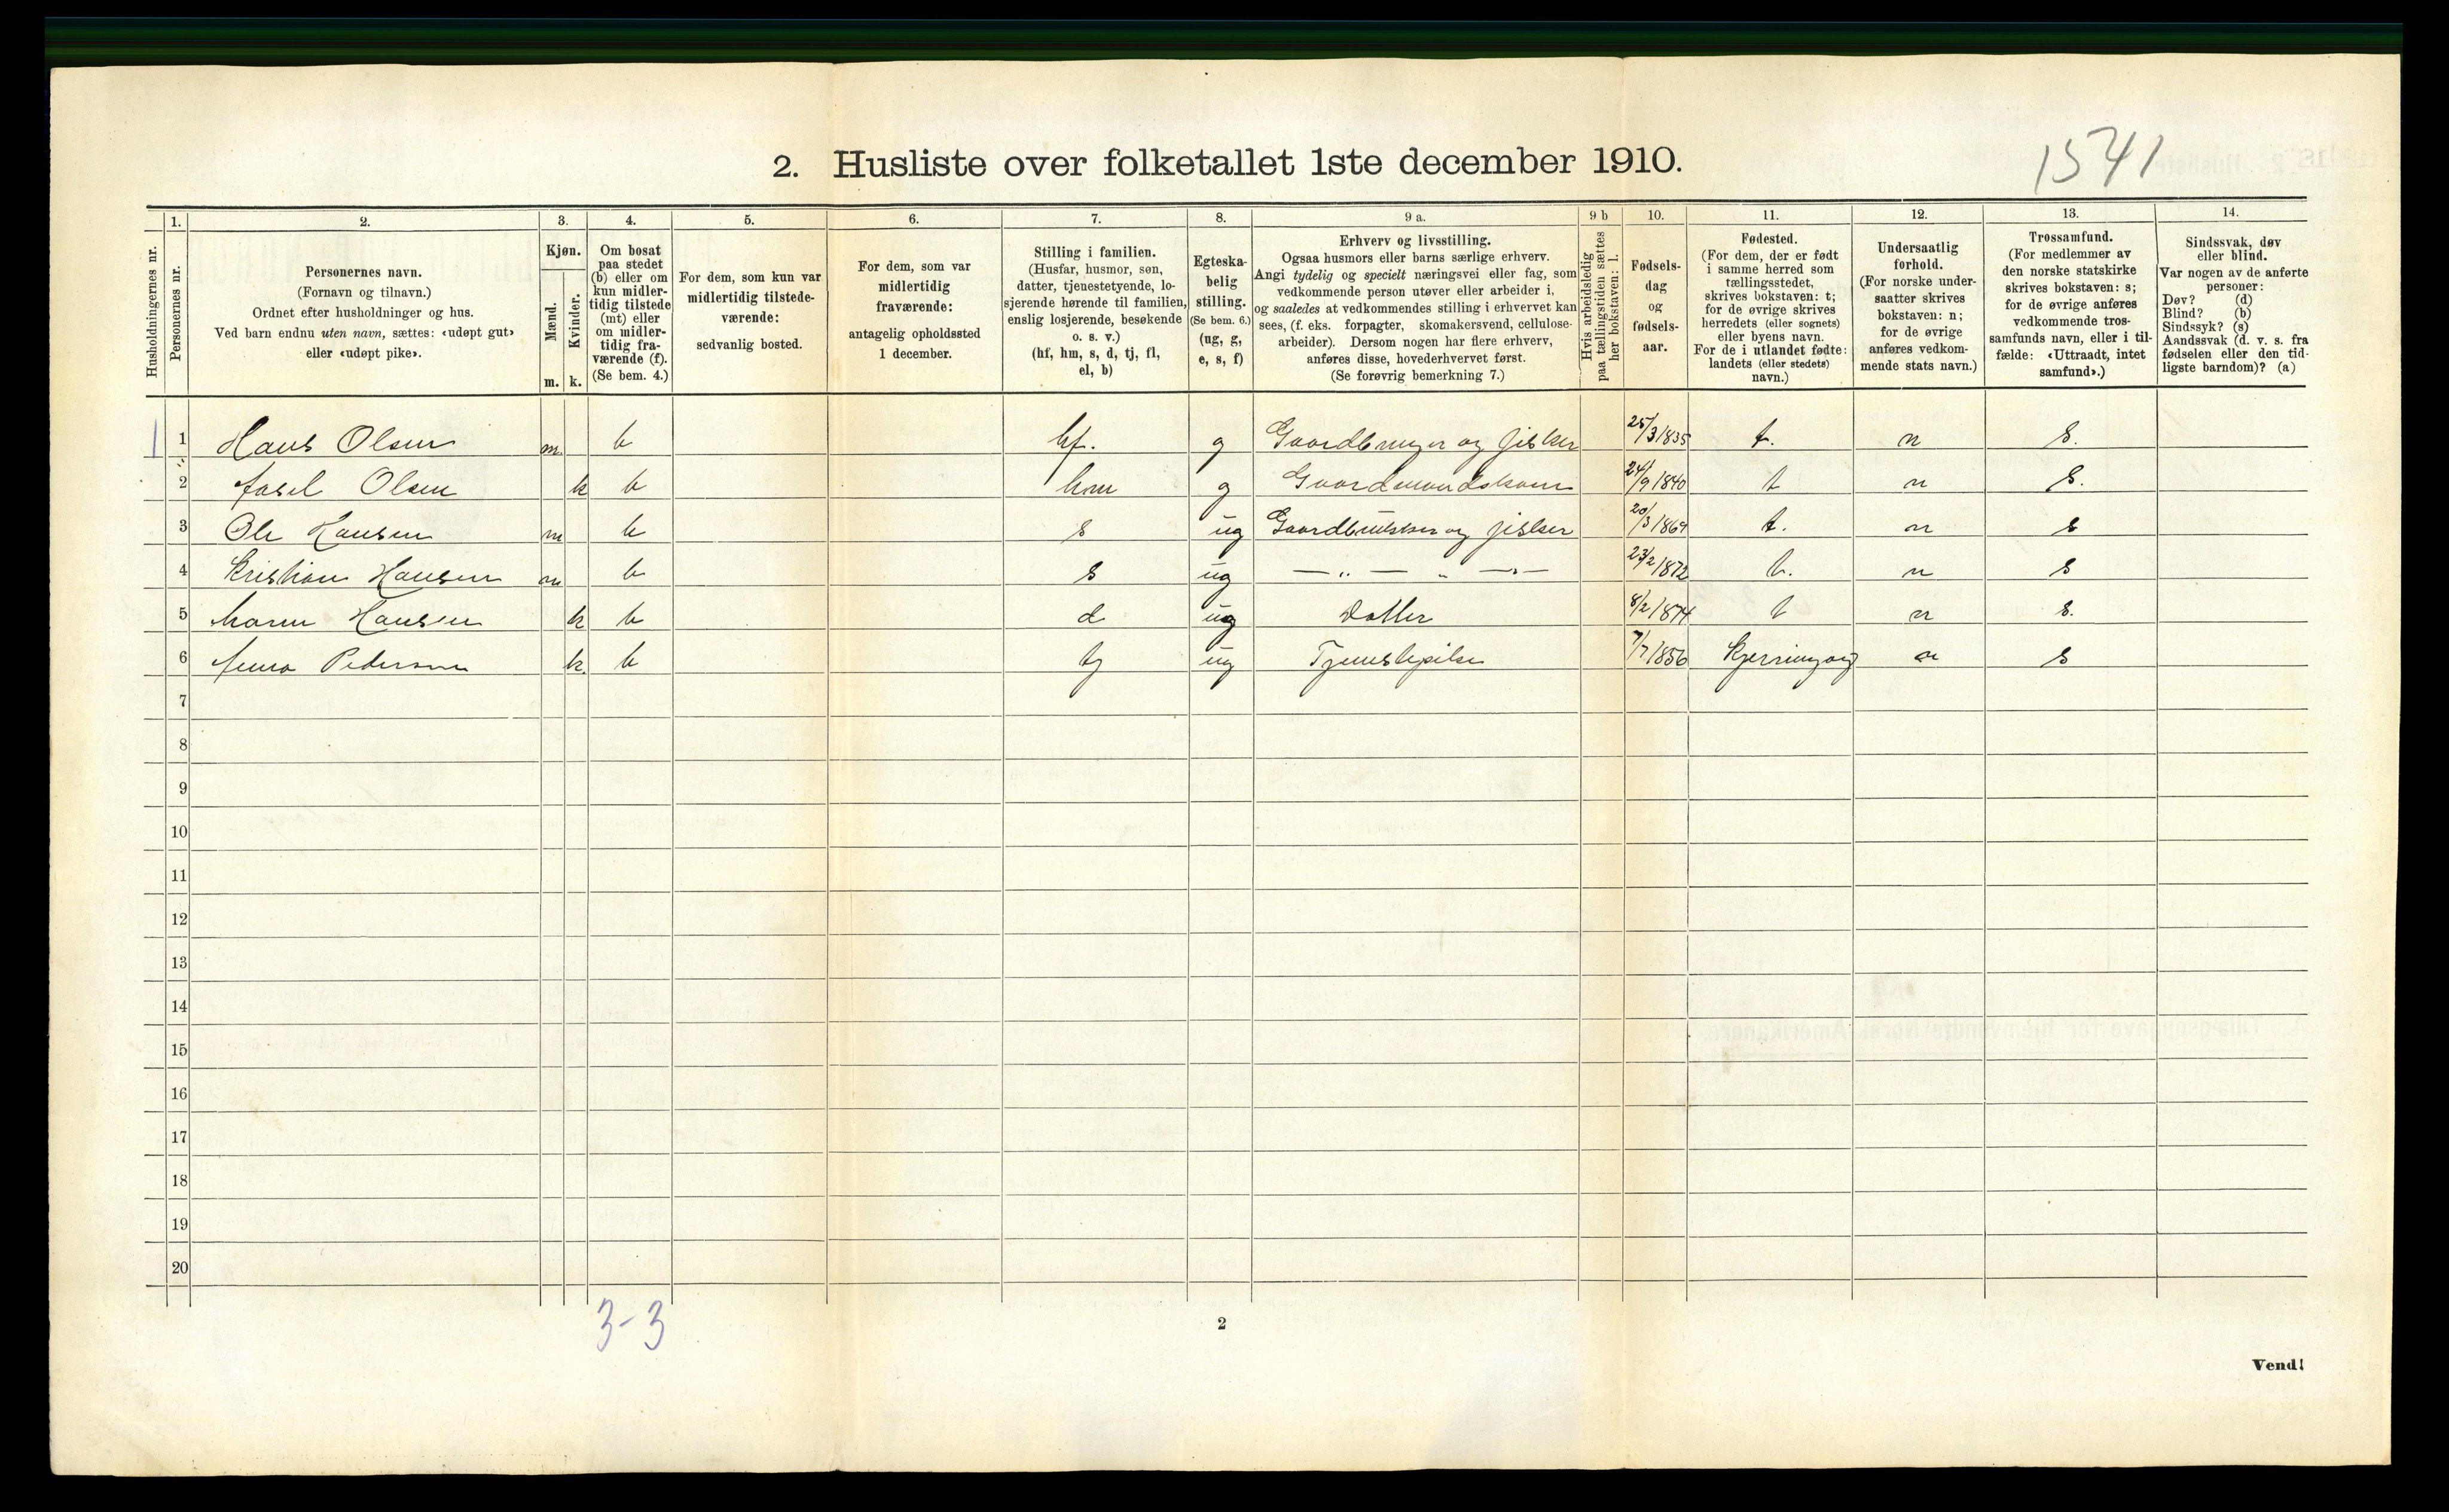 1541
2. Husliste over folketallet 1ste december 1910.
Husholdningernes nr.
1. Personernes nr.
2. Personernes navn.
(Fornavn og tilnavn.)
Ordnet efter husholdninger og hus.
Ved barn endnu uten navn, sættes: «udøpt gut»
eller «udøpt pike».
3. Kjøn.
Mænd. m.
Kvinder. k.
4. Om bosat
paa stedet
(b) eller om
kun midler-
tidig tilstede
(mt) eller
om midler-
tidig fra-
værende (f).
(Se bem. 4.)
5. For dem, som kun var
midlertidig tilstede-
værende:
sedvanlig bosted.
6. For dem, som var
midlertidig
fraværende:
antagelig opholdssted
1 december.
7. Stilling i familien.
(Husfar, husmor, søn,
datter, tjenestetyende, lo-
sjerende hørende til familien,
enslig losjerende, besøkende
o. s. v.)
(hf, hm, s, d, tj, fl,
el, b)
8. Egteska-
belig
stilling.
(Se bem. 6.)
(ug, g,
e, s, f)
9 a. Erhverv og livsstilling.
Ogsaa husmors eller barns særlige erhverv.
Angi tydelig og specielt næringsvei eller fag, som
vedkommende person utøver eller arbeider i,
og saaledes at vedkommendes stilling i erhvervet kan
sees, (f. eks. forpagter, skomakersvend, cellulose-
arbeider). Dersom nogen har flere erhverv,
anføres disse, hovederhvervet først.
(Se forøvrig bemerkning 7.)
9 b Hvis arbeidsledig
paa tællingstiden sættes
her bokstaven: l.
10. Fødsels-
dag
og
fødsels-
aar.
11. Fødested.
(For dem, der er født
i samme herred som
tællingsstedet,
skrives bokstaven: t;
for de øvrige skrives
herredets (eller sognets)
eller byens navn.
For de i utlandet fødte:
landets (eller stedets)
navn.)
12. Undersaatlig
forhold.
(For norske under-
saatter skrives
bokstaven: n;
for de øvrige
anføres vedkom-
mende stats navn.)
13. Trossamfund.
(For medlemmer av
den norske statskirke
skrives bokstaven: s;
for de øvrige anføres
vedkommende tros-
samfunds navn, eller i til-
fælde: «Uttraadt, intet
samfund».)
14. Sindssvak, døv
eller blind.
Var nogen av de anførte
personer:
Døv? (d)
Blind? (b)
Sindssyk? (s)
Aandssvak (d. v. s. fra
fødselen eller den tid-
ligste barndom)? (a)
1 1 Hans Olsen m. b hf. g Gaardbruger og fisker 25/3 1835 t. n s.
2 Olsen k b hm g Gaardmandskone 24/9 1840 t n s.
3 Ole Hansen m b s ug og fisker 20/3 1869 t. n s
4 Kristian Hansen m b s ug — „ — „ — „ — 23/2 1872 t. n s
5 Maren Hansen k b d ug Datter 8/2 1874 t n s.
6 Anna Pedersen k. b tj ug Tjenestepike 7/7 1856 Kjerringøy n s
7
8
9
10
11
12
13
14
15
16
17
18
19
20
3-3
2
Vend!